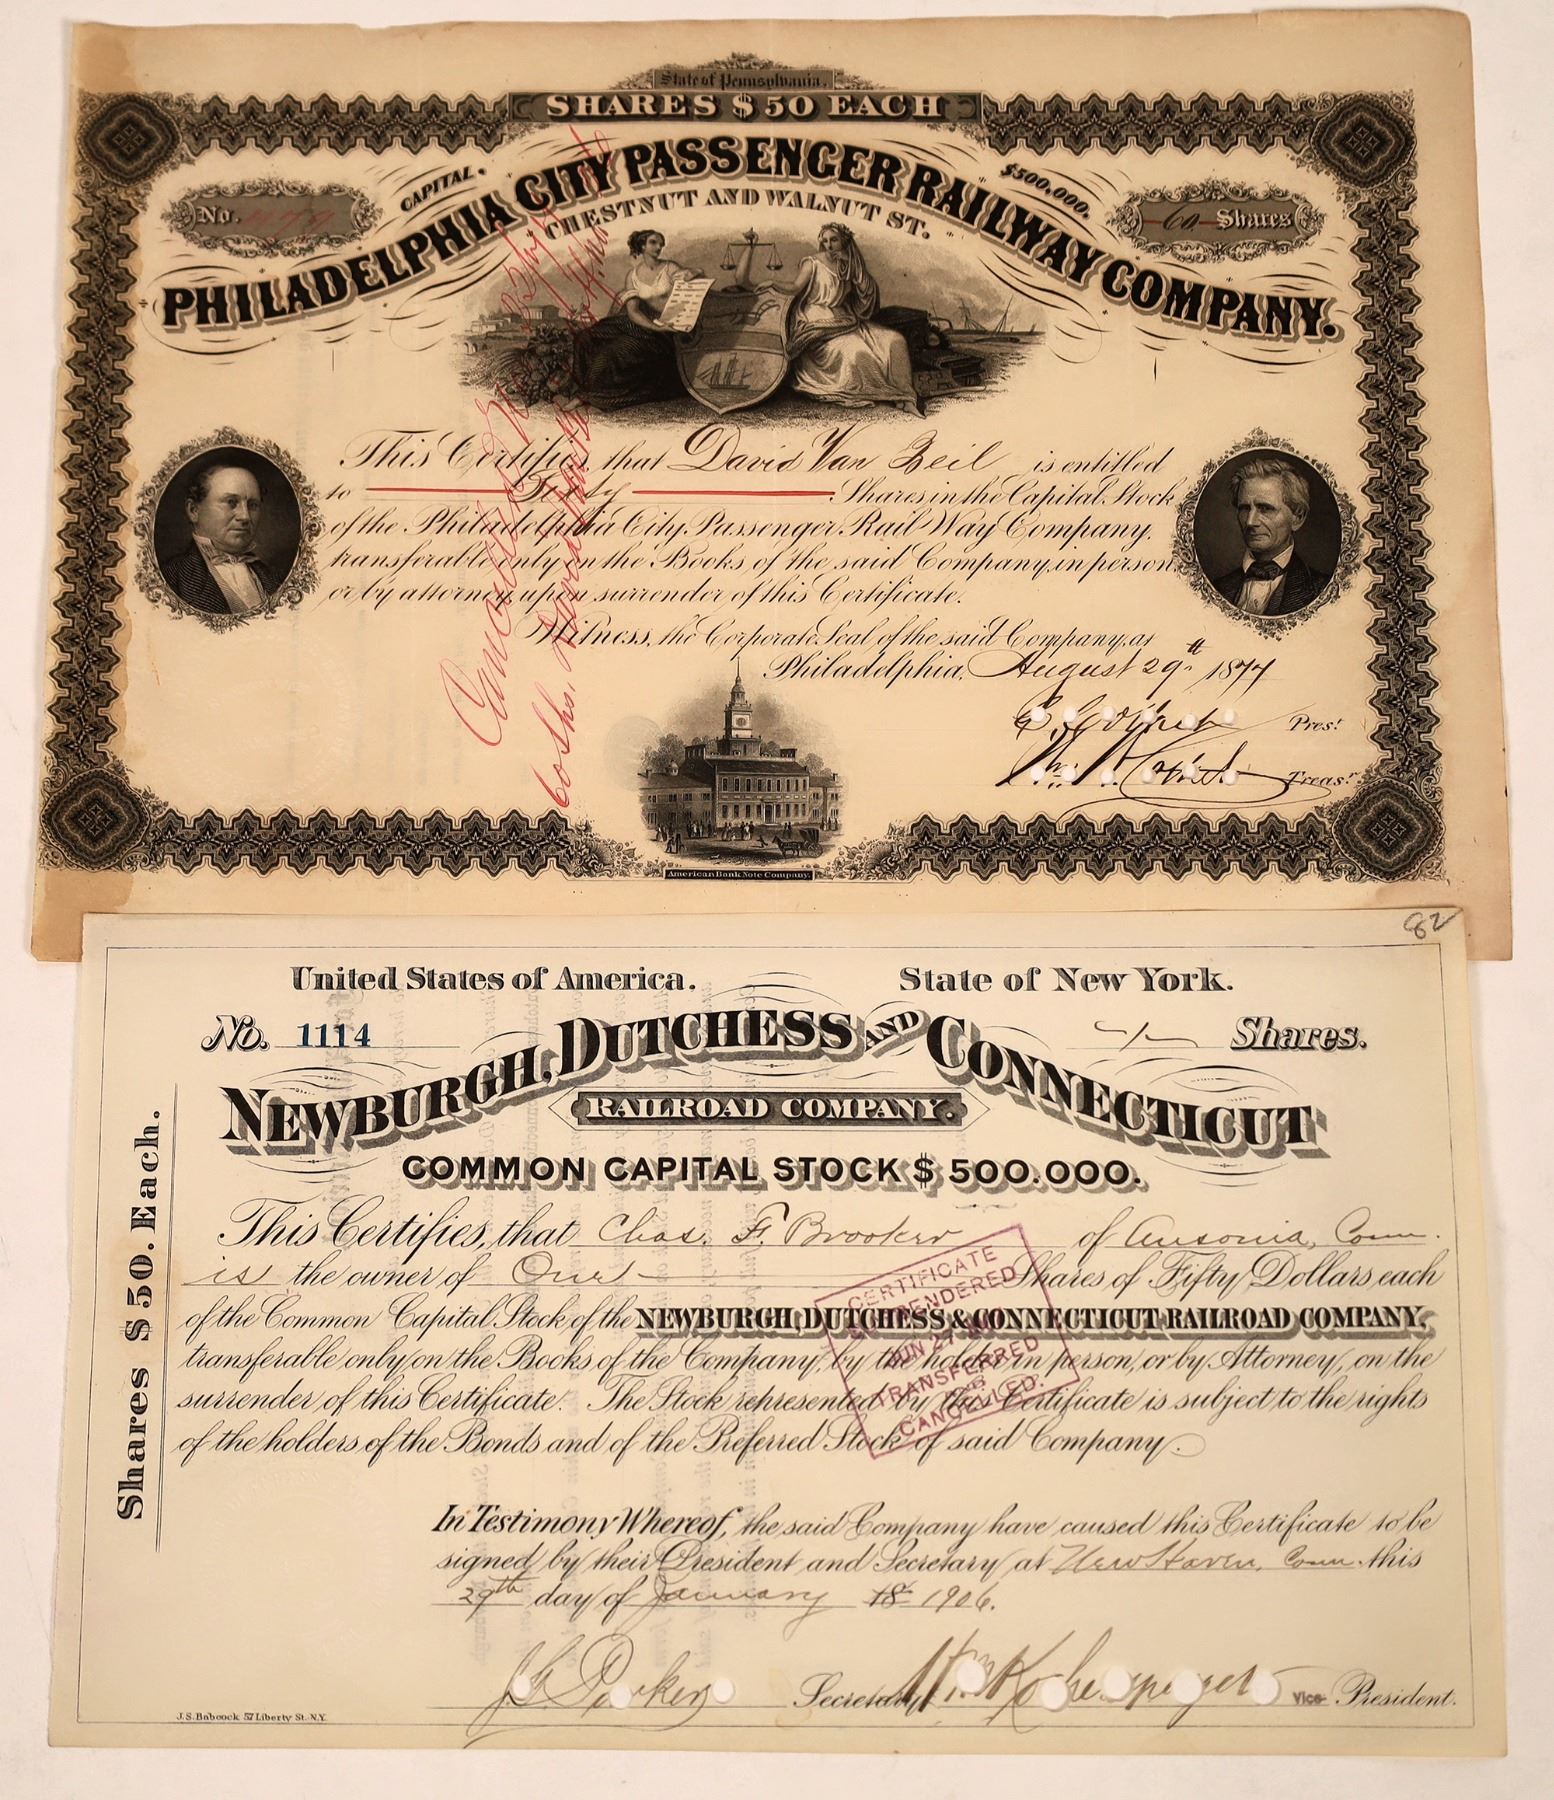 State of Pennsylvania.
SHARES $50 EACH
No.
CAPITAL.
$500,000.
60 Shares
PHILADELPHIA CITY PASSENGER RAILWAY COMPANY.
CHESTNUT AND WALNUT ST.
This Certifies that David Van Beil is entitled
to Sixty Shares in the Capital Stock
of the Philadelphia City Passenger Rail Way Company.
transferable only on the Books of the said Company, in person
or by attorney upon surrender of this Certificate.
Witness, the Corporate Seal of the said Company, at
Philadelphia, August 29th 1877
Prest.
Treasr.
Cancelled
60 Shs.
American Bank Note Company.
82
United States of America. State of New York.
No. 1114
1 Shares.
NEWBURGH, DUTCHESS AND CONNECTICUT
RAILROAD COMPANY.
COMMON CAPITAL STOCK $500.000.
Shares $50. Each.
This Certifies, that Chas. F. Brooker of Ansonia, Conn.
is the owner of One Shares of Fifty Dollars each
of the Common Capital Stock of the NEWBURGH, DUTCHESS & CONNECTICUT RAILROAD COMPANY,
transferable only on the Books of the Company, by the holder in person, or by Attorney, on the
surrender of this Certificate. The Stock represented by this Certificate is subject to the rights
of the holders of the Bonds and of the Preferred Stock of said Company.
CERTIFICATE
SURRENDERED
JUN 27
TRANSFERRED
CANCELLED.
In Testimony Whereof, the said Company have caused this Certificate to be
signed by their President and Secretary at New Haven, Conn. this
29th day of January 18 1906.
J. G. Parker Secretary Vice- President.
J.S. Babcock 57 Liberty St. N.Y.